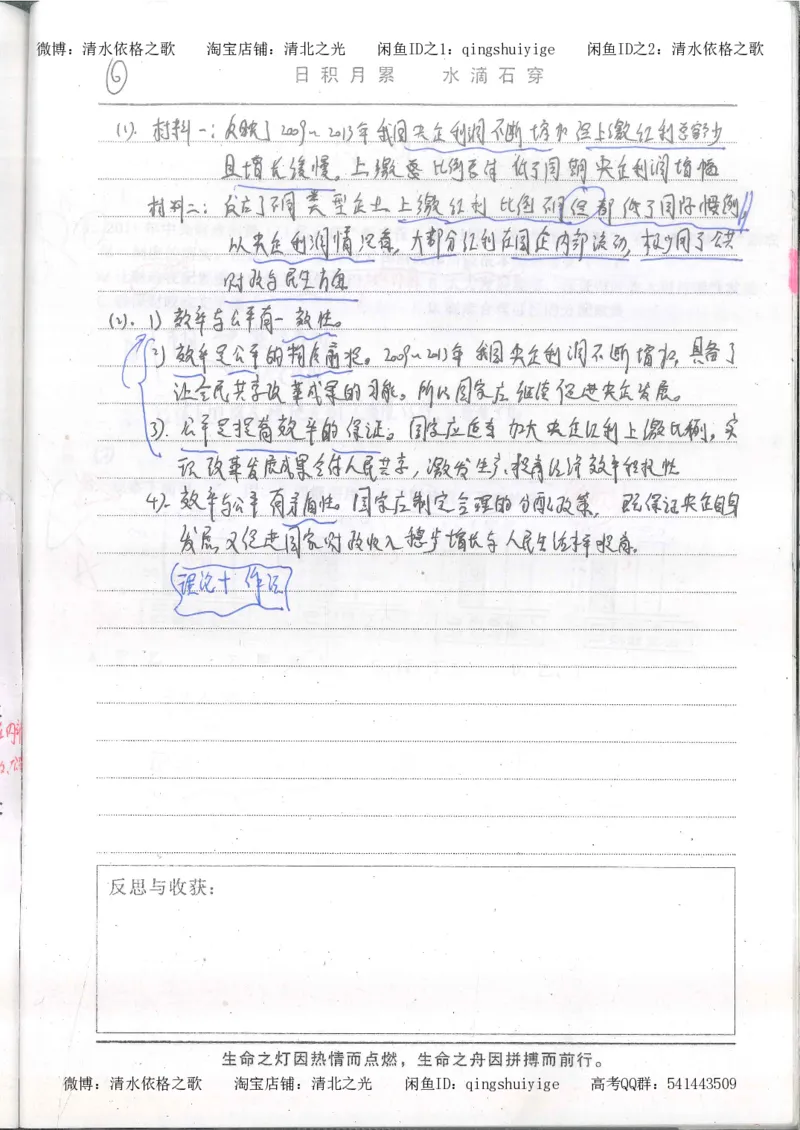 微博：清水依格之歌 淘宝店铺：清北之光 闲鱼ID之1：qingshuiyige 闲鱼ID之2：清水依格之歌
⑥
日积月累 水滴石穿
(1). 材料一：反映了2009~2013年我国央企利润不断增加但上缴红利总额少
且增长缓慢。上缴总比例占付低于同期央企利润增幅
材料二：反应了不同类型企业上缴红利比例不同但都低于国际惯例
从央企利润情况看，大部分红利在国企内部流动，较少用于公共
财政与民生方面
(2). 1) 效率与公平有一致性。
2) 效率是公平的物质前提。2009~2013年我国央企利润不断增加，具备了
让全民共享改革成果的可能。所以国家应继续促进央企发展。
3). 公平是提高效率的保证。国家应逐步加大央企红利上缴比例，实
现改革发展成果全体人民共享，激发生产、提高经济效率积极性
4). 效率与公平有矛盾性。国家应制定合理的分配政策，既保证央企自身
发展又促进国家财政收入稳步增长与人民生活水平提高。
理论＋作法
反思与收获：
生命之灯因热情而点燃，生命之舟因拼搏而前行。
微博：清水依格之歌 淘宝店铺：清北之光 闲鱼ID：qingshuiyige 高考QQ群：541443509